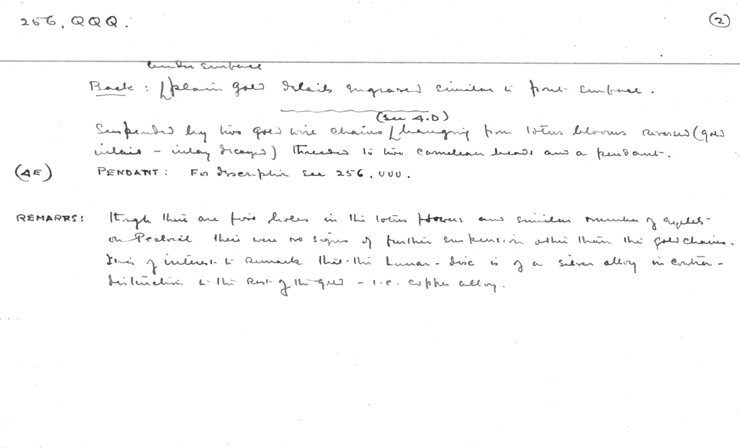 256, QQQ.
(2)
under surface
Back: plain gold details engraved similar to front surface.
(see 4.D)
Suspended by two gold wire chains hanging from lotus blooms reversed (gold
inlaid - inlay decayed) threaded to two carnelian beads and a pendant.
(4E) PENDANT: For description see 256, UUU.
REMARKS: Though there are five holes in the lotus flowers and similar number of eyelets
on Pectoral there were no signs of further suspension other than the gold chains.
It is of interest to remark that the Lunar-disc is of a silver alloy in contra-
distinction to the rest of the gold - i.e. copper alloy.